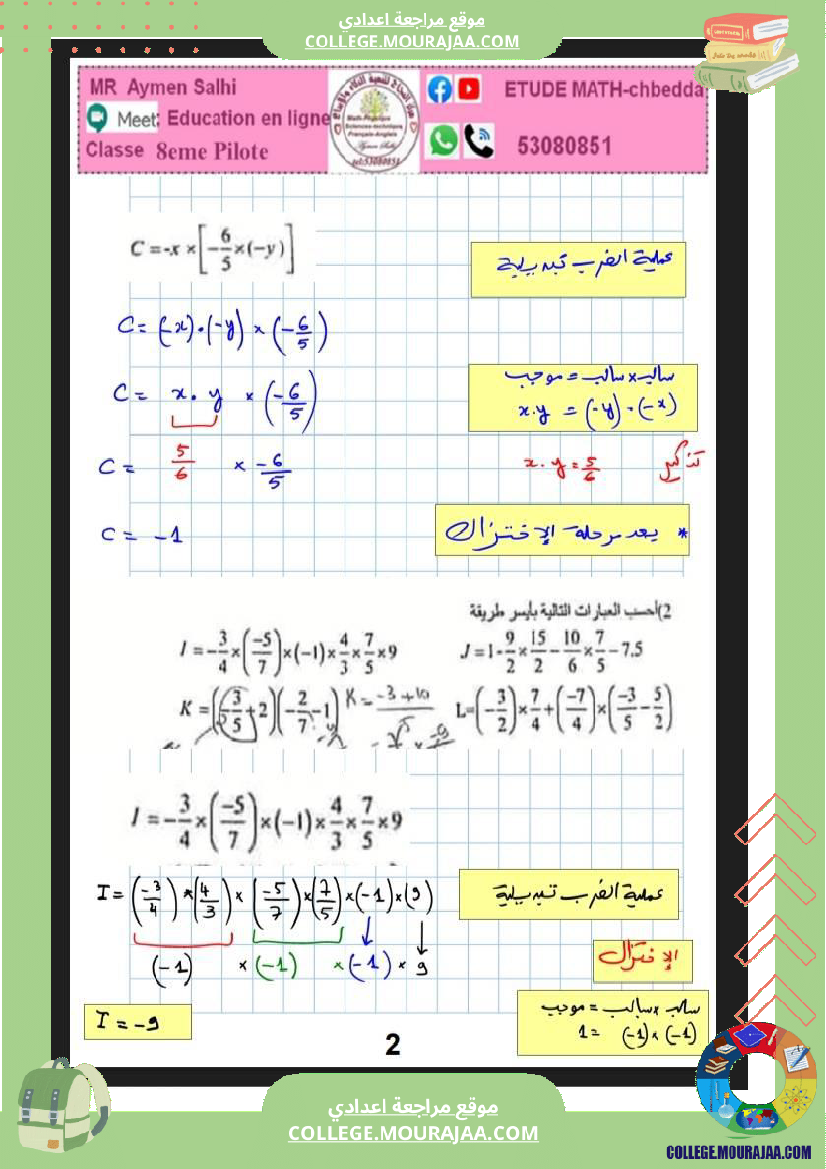 موقع مراجعة اعدادي
COLLEGE.MOURAJAA.COM
MR Aymen Salhi
Meet: Education en ligne
Classe 8eme Pilote
ETUDE MATH-chbedda
53080851
C = -x × [-6/5 × (-y)]
عملية الضرب تبديلية
C = (-x) · (-y) × (-6/5)
C = x . y × (-6/5)
سالب × سالب = موجب
x.y = (-y) · (-x)
C = 5/6 × -6/5
x . y = 5/6 تذكير
C = -1
* بعد مرحلة الإختزال
2)أحسب العبارات التالية بأيسر طريقة
I = -3/4 × (-5/7) × (-1) × 4/3 × 7/5 × 9
J = 1 - 9/2 × 15/2 - 10/6 × 7/5 - 7,5
K = (-3/5 + 2)(-2/7 - 1) K = -3+10
L = (-3/2) × 7/4 + (-7/4) × (-3/5 - 5/2)
I = -3/4 × (-5/7) × (-1) × 4/3 × 7/5 × 9
I = (-3/4) × (4/3) × (-5/7) × (7/5) × (-1) × (9)
عملية الضرب تبديلية
(-1) × (-1) × (-1) × 9
الإختزال
I = -9
سالب × سالب = موجب
1 = (-1) × (-1)
2
موقع مراجعة اعدادي
COLLEGE.MOURAJAA.COM
COLLEGE.MOURAJAA.COM